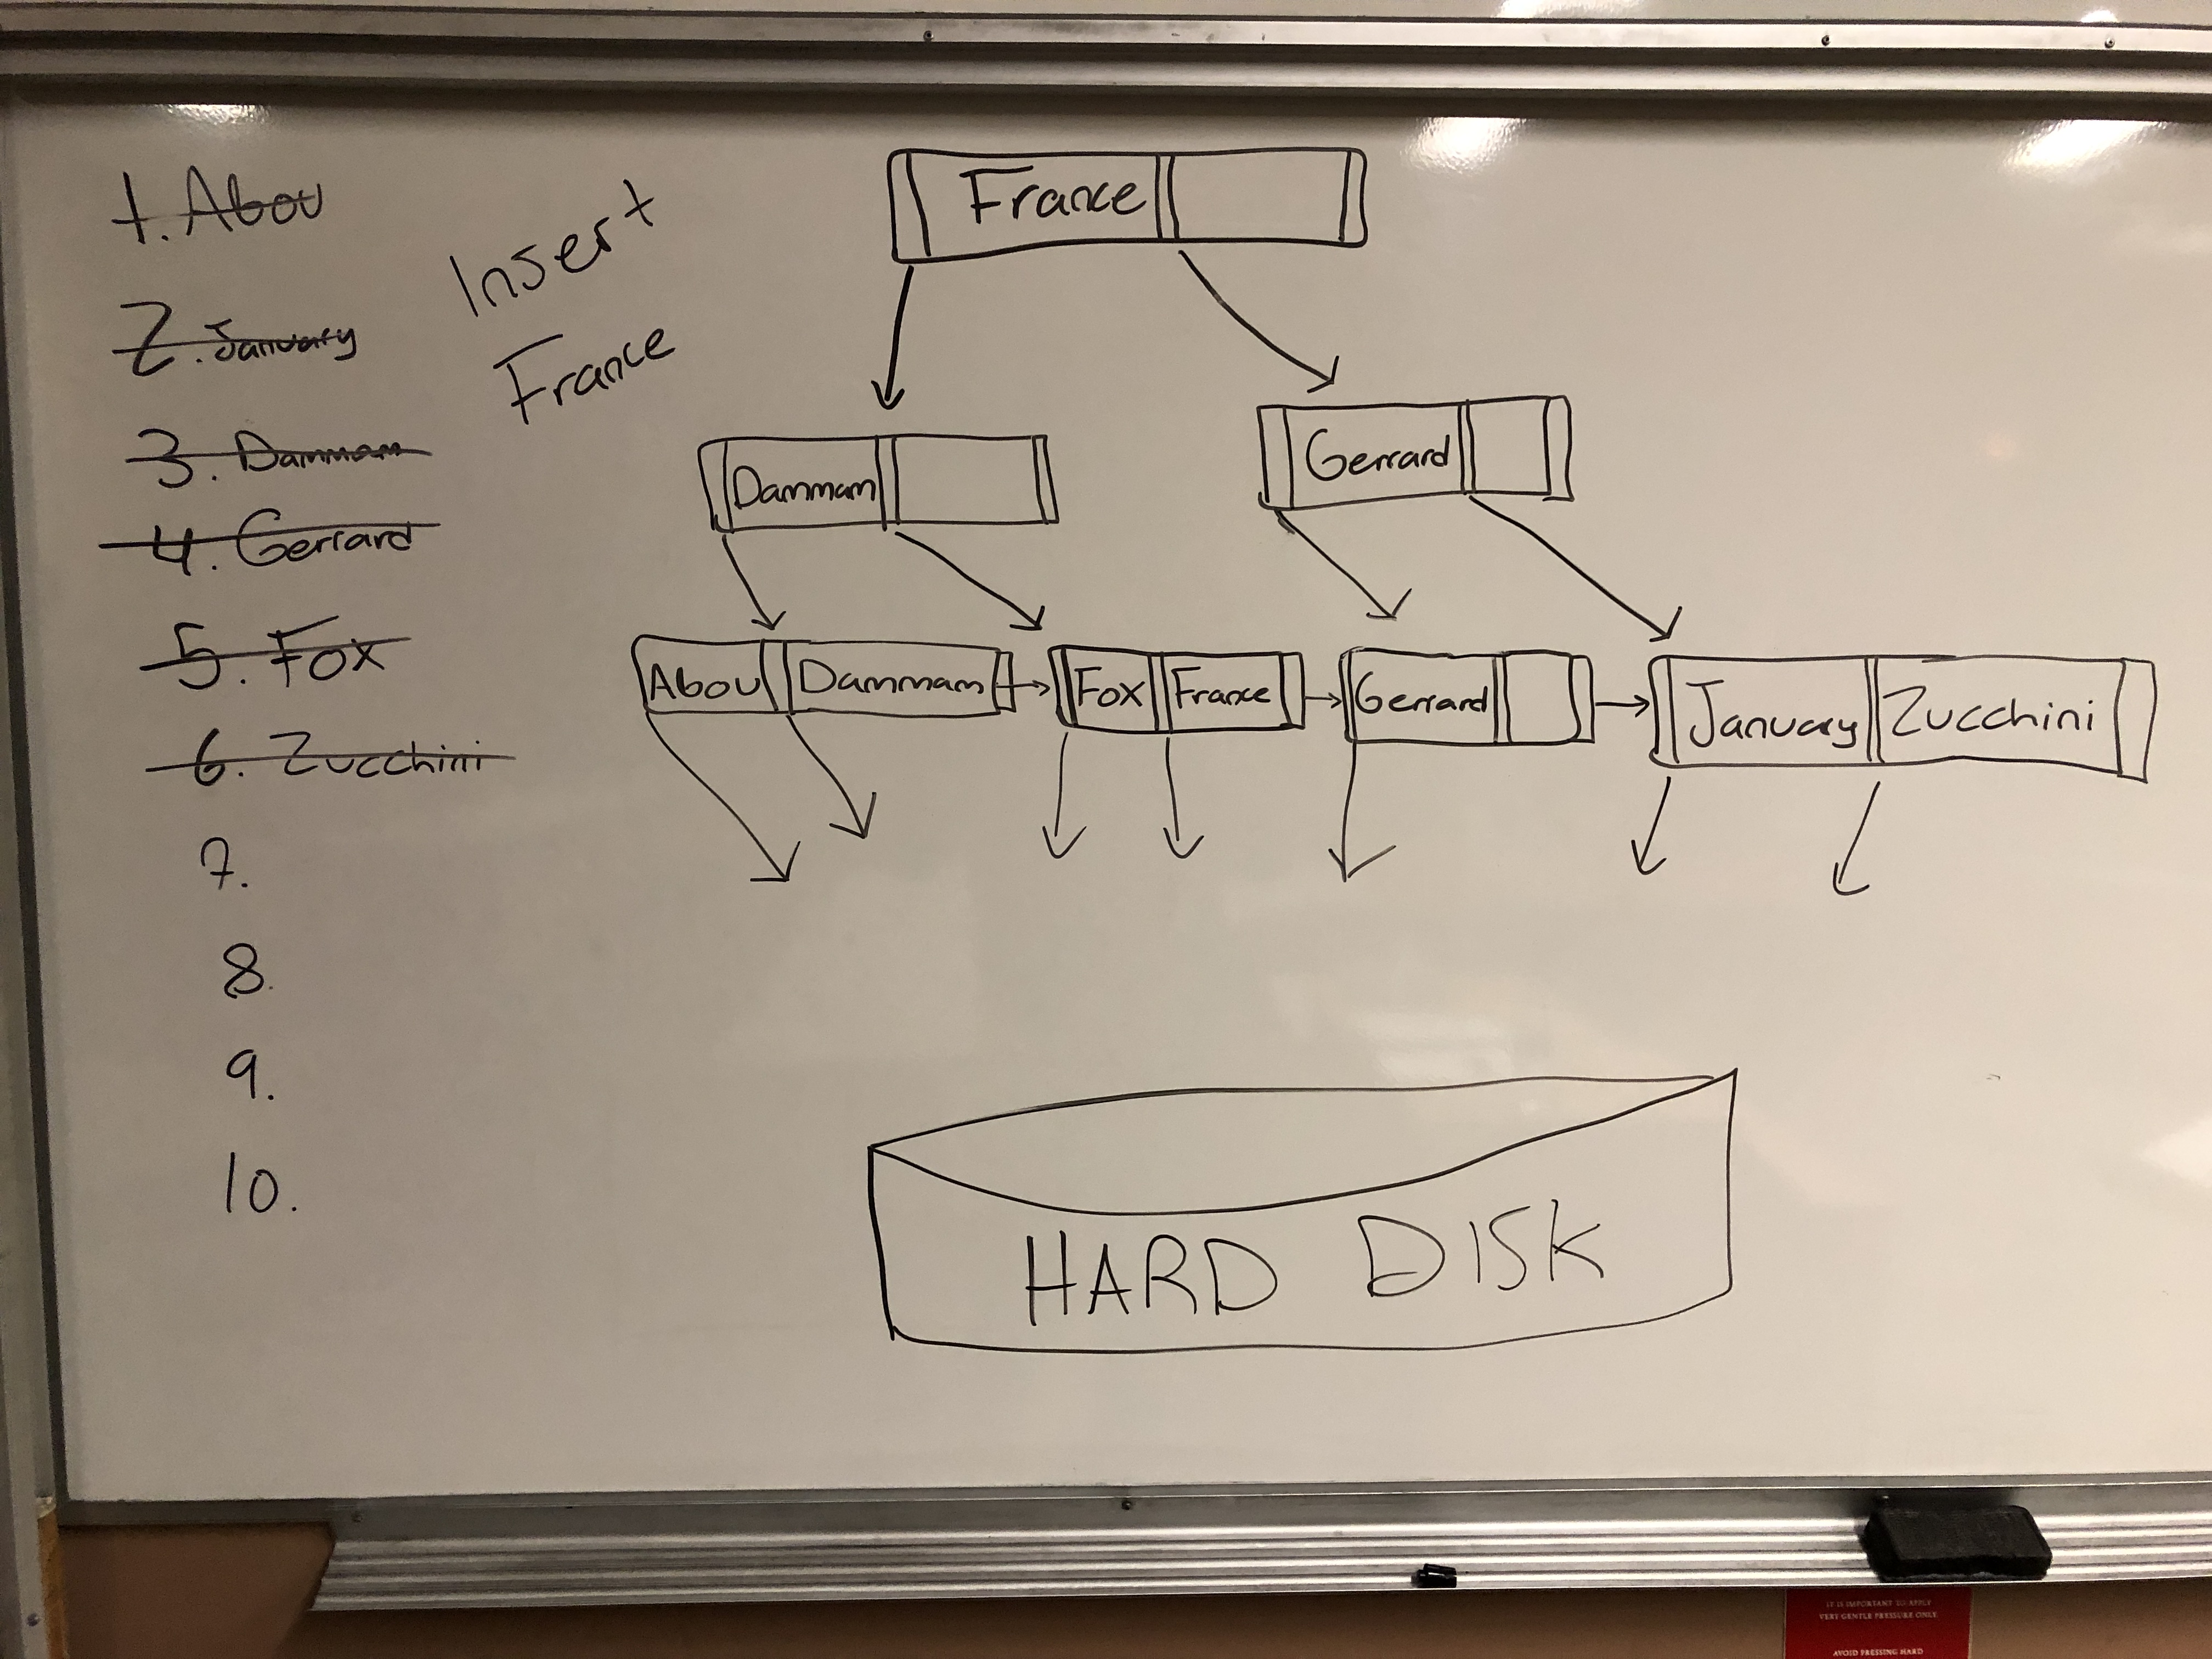 1. Abou
2. January
3. Dammam
4. Gerrard
5. Fox
6. Zucchini
7.
8.
9.
10.
Insert
France
France
Dammam
Gerrard
Abou Dammam
Fox France
Gerrard
January Zucchini
HARD DISK
IT IS IMPORTANT TO APPLY
VERY GENTLE PRESSURE ONLY
AVOID PRESSING HARD